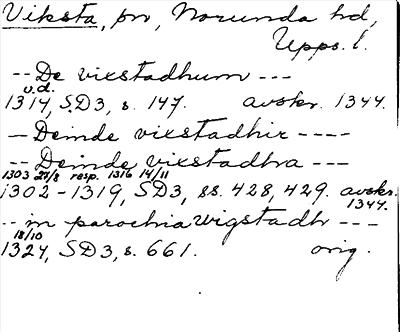 Viksta, sn, Norunda hd,
Upps. l.
-- De vixstadhum ---
u.d.
1314, SD3, s. 147. avskr. 1344.
- Deinde vixstadhir ----
-- Deinde vixstadhra ---
1303 27/8 resp. 1316 14/11
1302-1319, SD3, ss. 428, 429. avskr.
1344.
-- in parochia wigstadh ---
18/10
1324, SD3, s. 661. orig.